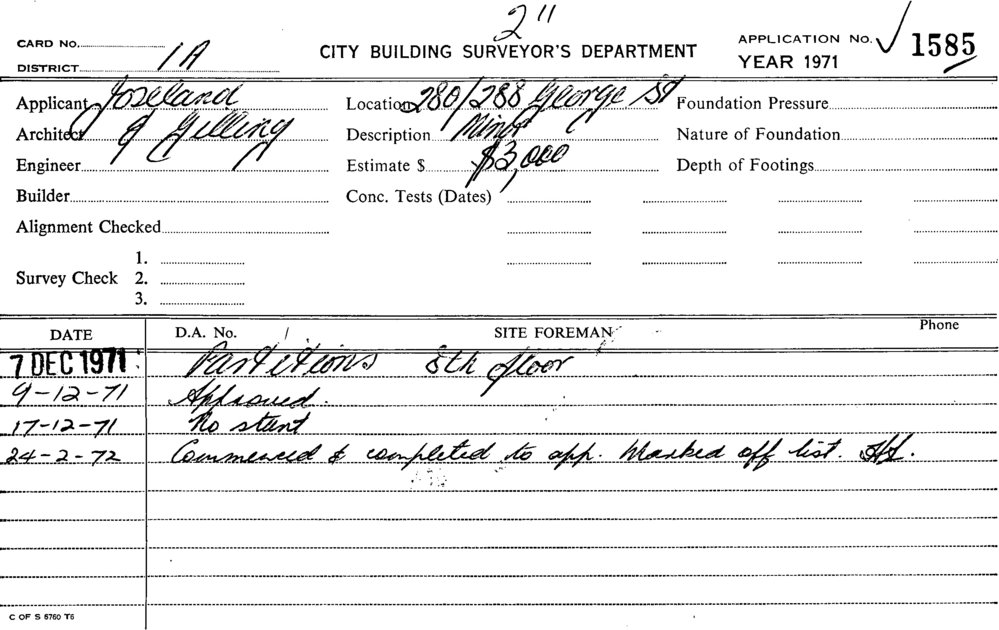 2"
CARD No.
CITY BUILDING SURVEYOR'S DEPARTMENT
APPLICATION No. ✓ 1585
DISTRICT 1A
YEAR 1971
Applicant Joseland
Location 280/288 George St
Foundation Pressure
Architect & Gilling
Description Minor
Nature of Foundation
Engineer
Estimate $ $3,000
Depth of Footings
Builder
Conc. Tests (Dates)
Alignment Checked
Survey Check
1.
2.
3.
DATE D.A. No. / SITE FOREMAN Phone
7 DEC 1971 Partitions 8th floor
9-12-71 Approved.
17-12-71 No start
24-2-72 Commenced & completed to app. Marked off list.
C OF S 5760 T6